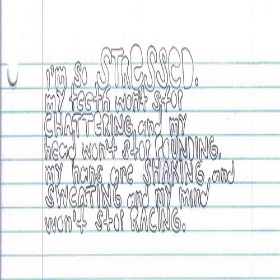 I'm so STRESSED.
MY teeth won't stop
CHATTERING and my
head won't stop POUNDING.
my hans are SHAKING and
SWEATING and my mind
won't stop RACING.